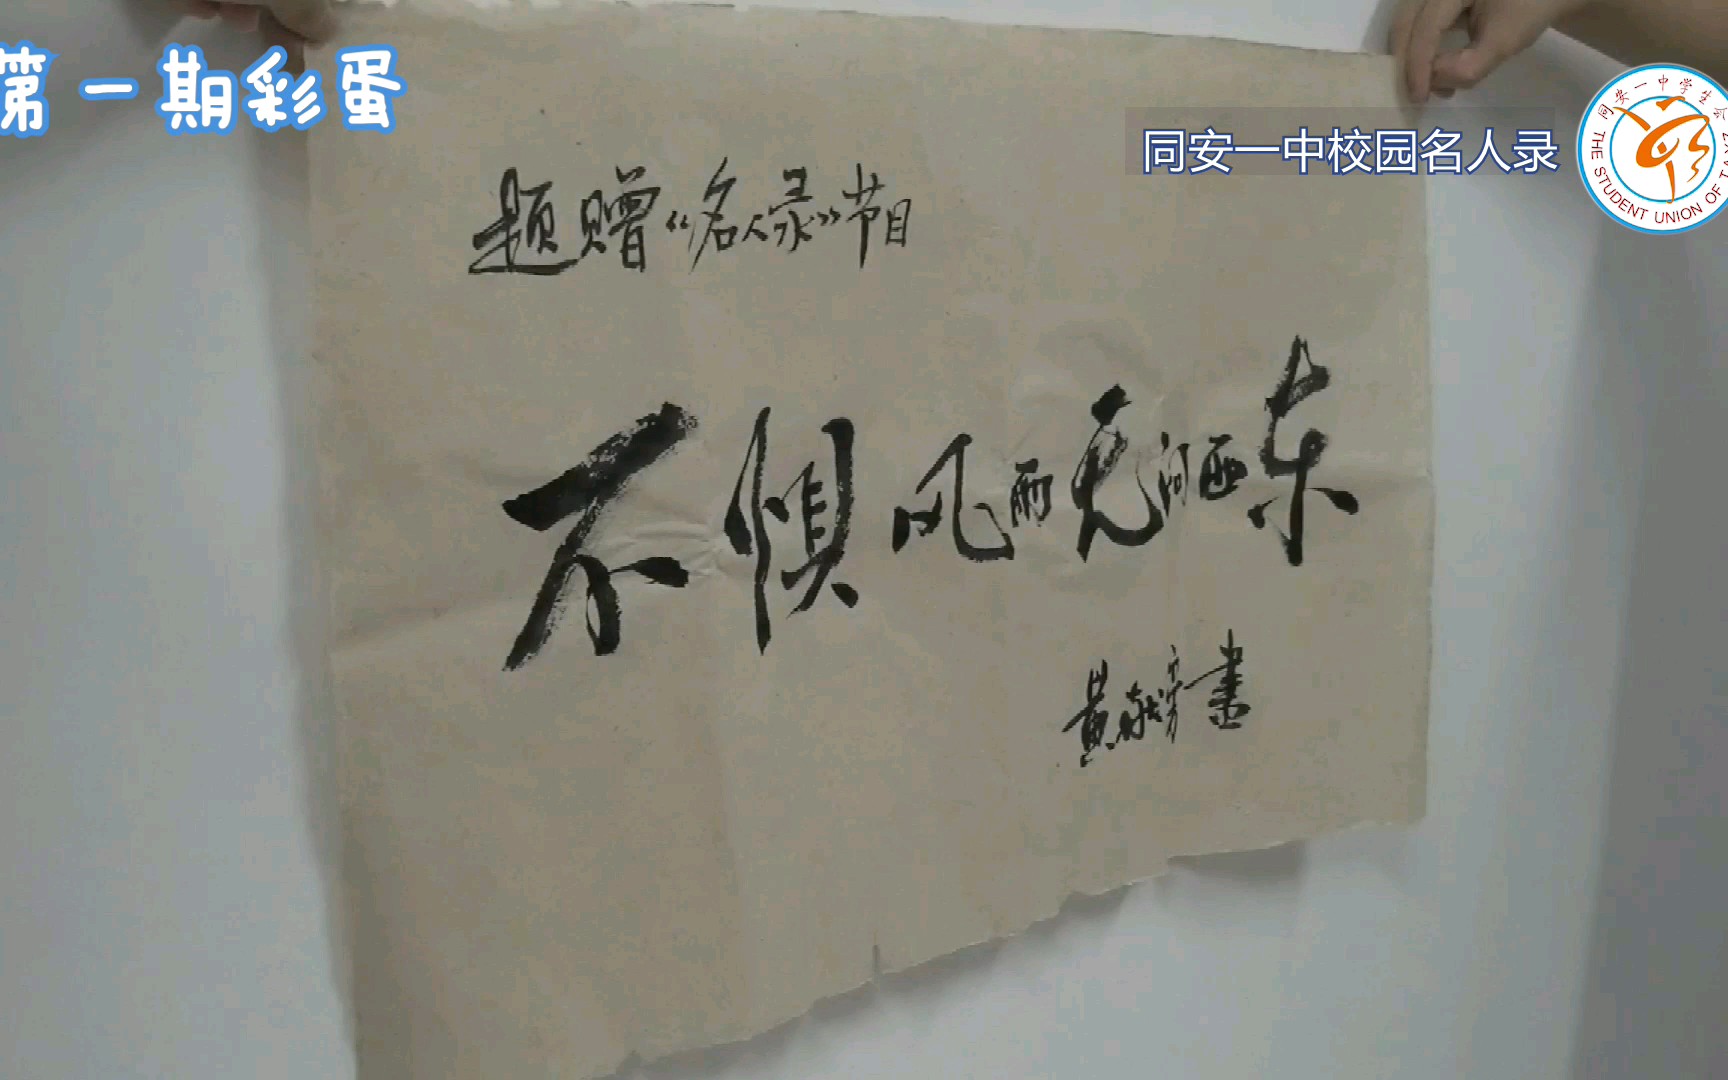 第一期彩蛋
同安一中校园名人录
同安一中学生会
THE STUDENT UNION OF T
题赠《名人录》节目
不惧风雨无问西东
黄 书